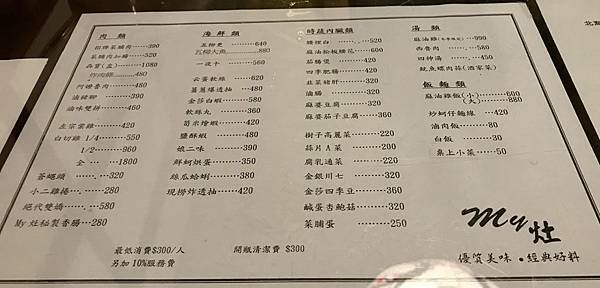 肉 類
招牌菜脯肉……390
菜脯肉加麵……320
西寶(盅)……1080
炸肉條……480
阿嬤魯肉……480
滷豬腳……390
滷味雙拼……460
左宗棠雞……420
白切雞 1/4……550
1/2……960
全 ……1800
蒼蠅頭 ……320
小二雞捲……280
絕代雙嬌……580
My 灶秘製香腸…280
海 鮮 類
五柳支 ……640
五柳大魚……880
一夜干 ……560
云蛋軟絲……620
薑蔥爆透抽 …480
金莎白蝦……580
軟絲丸 ……360
筍米燴蝦……420
鹽酥蝦 ……580
娘二味 ……390
鮮蚵烘蛋……350
絲瓜蛤蜊……380
現撈炸透抽……420
時蔬內臟類
腰裡白 ……520
麻油松板腰花……680
茄腸煲 ……420
四季肥腸……420
韭菜豬肝……320
滷腸 ……320
麻婆豆腐……320
麻婆茄子豆腐……320
樹子高麗菜……220
蒜片A菜 ……200
腐乳通菜 ……220
金銀川七 ……320
金莎四季豆……360
鹹蛋杏鮑菇……320
菜脯蛋 ……250
湯 類
麻油雞(冬季限定)…990
西魯肉 ……580
四神湯 ……450
魷魚螺肉蒜(酒家菜)
飯 麵 類
麻油雞飯(小)……600
(大)……880
炒蚵仔麵線 …400
滷肉飯……80
白飯 ……30
桌上小菜……50
最低消費$300/人
另加10%服務費
開瓶清潔費 $300
My 灶
優質美味・經典好料